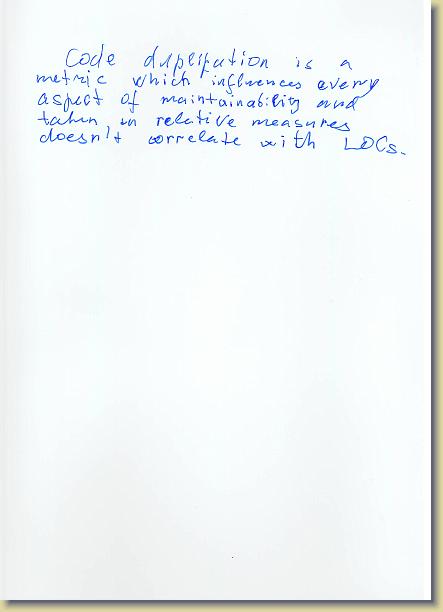 Code duplication is a
metric which influences every
aspect of maintainability and
taken in relative measures
doesn't correlate with LOCs.